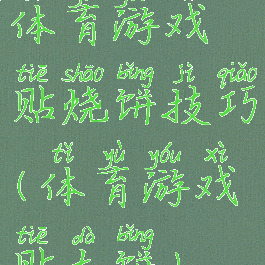 体育游戏
tiē shāo bǐng jì qiǎo
贴烧饼技巧
tǐ yù yóu xì
(体育游戏
tiē dà bǐng
贴大饼)